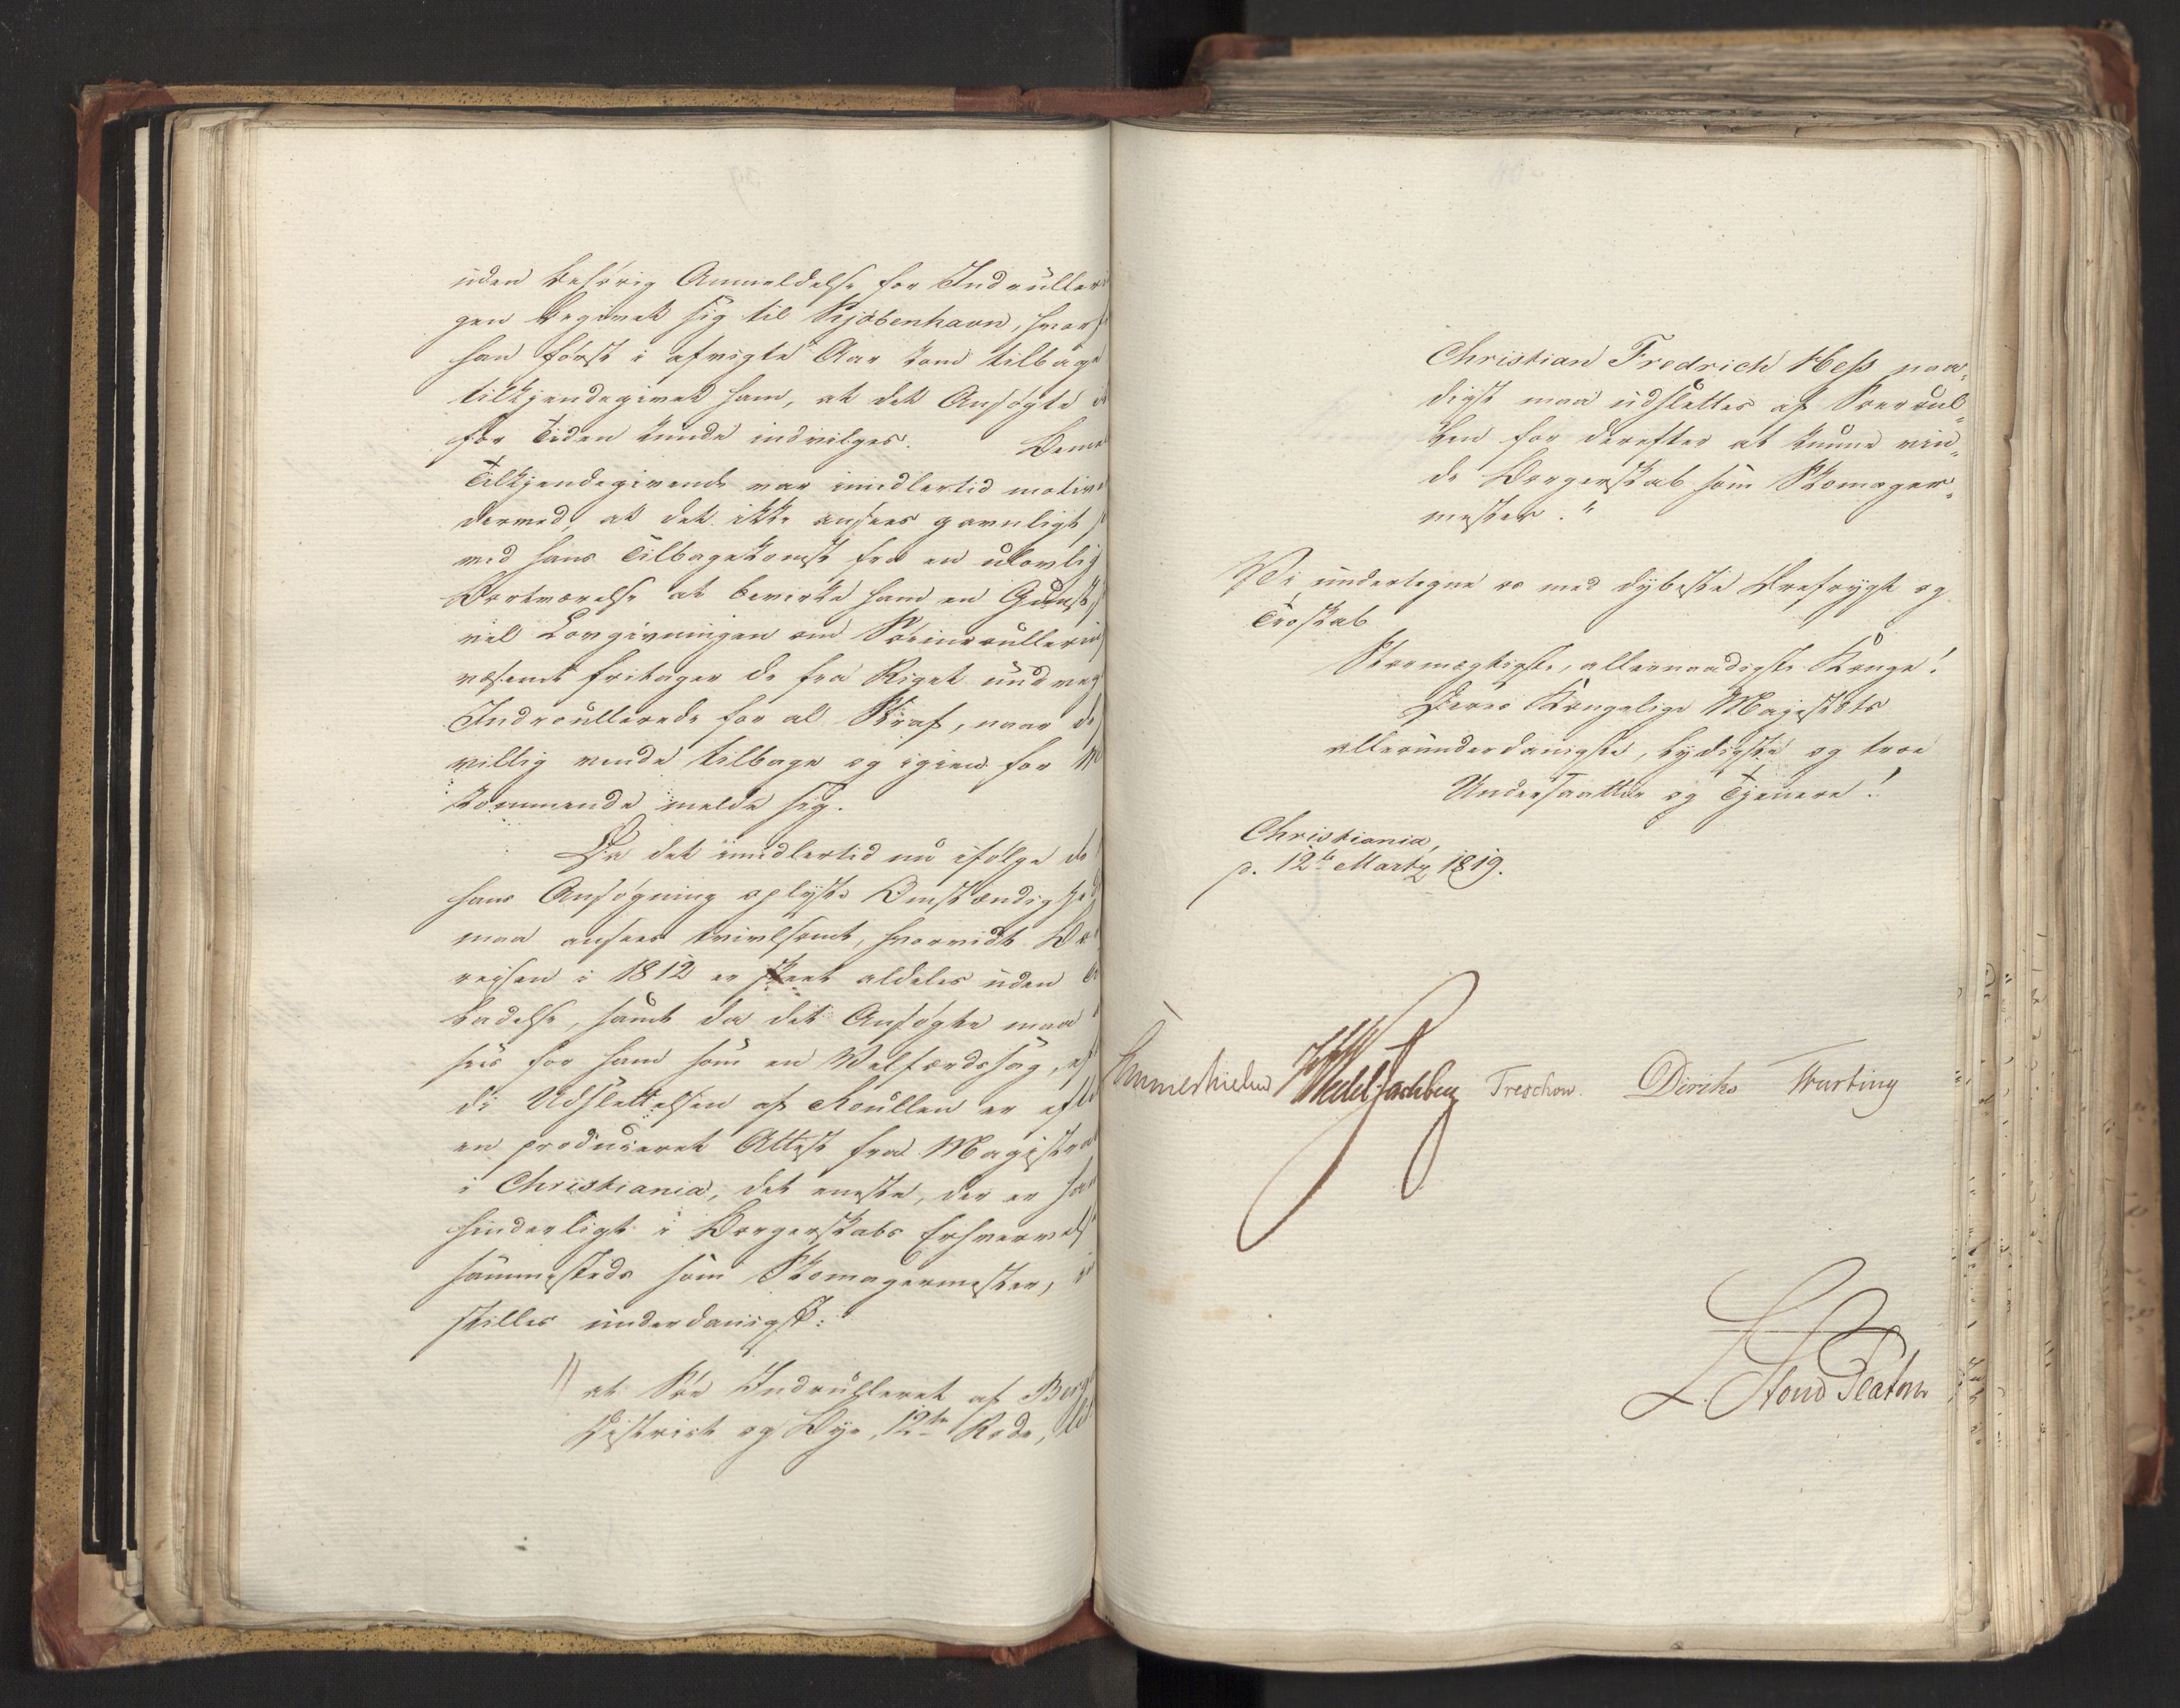 uden behørig Anmeldelse for Indrulleri
gen begivet sig til Kjöbenhavn, hvor
han först i afvigte Aar kom tilbage
tilkjendegivet ham, at det Ansøgte
for Tiden kunde indvilges.
Tilkjendegivende var imidlertid motive
dermed, at det ikke ansees gavnligt
ved hans Tilbagekomst fra en ulovlig
Bortværelse at bevirke ham en Gunst,
vel Lovgivningen om Söeinroullering
væsenet fritager de fra Riget undveg
Indroullerede for al Straf, naar de
villig vende tilbage og igien for
kommende melde sig.
Da det imidlertid nu ifölge de
hans Ansøgning oplyste Omstændighe
maa ansees tvivlsomt, hvorvidt Bo
reisen i 1812 er skeet aldeles uden
ladelse, samt da det Ansøgte maa
sees for ham som en Velfærdssag,
di Udslettelsen af Roullen er efte
en produceret Attest fra Magistra
i Christiania, det eneste, der er ham
hinderligt i Borgerskabs Erhvervels
sammesteds som Skomagermester,
stilles underdanigst:
at Söe Indroulleret af Berg
District og Bye, 12te Rode,
Christian Fredrich Hess naa„
digst maa udslettes af Söeroul„
len for derefter at kunne vin„
de Borgerskab som Skomager„
mester."
Vi undertegne os med dybeste Ærefrygt og
Troskab
Stormægtigste, allernaadigste Konge!
Deres Kongelige Majestæts
allerunderdanigste, lydigste og troe
Undersaatter og Tjenere!
Christiania,
p. 12te Martz 1819.
Sommerhielm Wedel Jarlsberg Treschow. Diriks Fasting
L. Stoud Platou